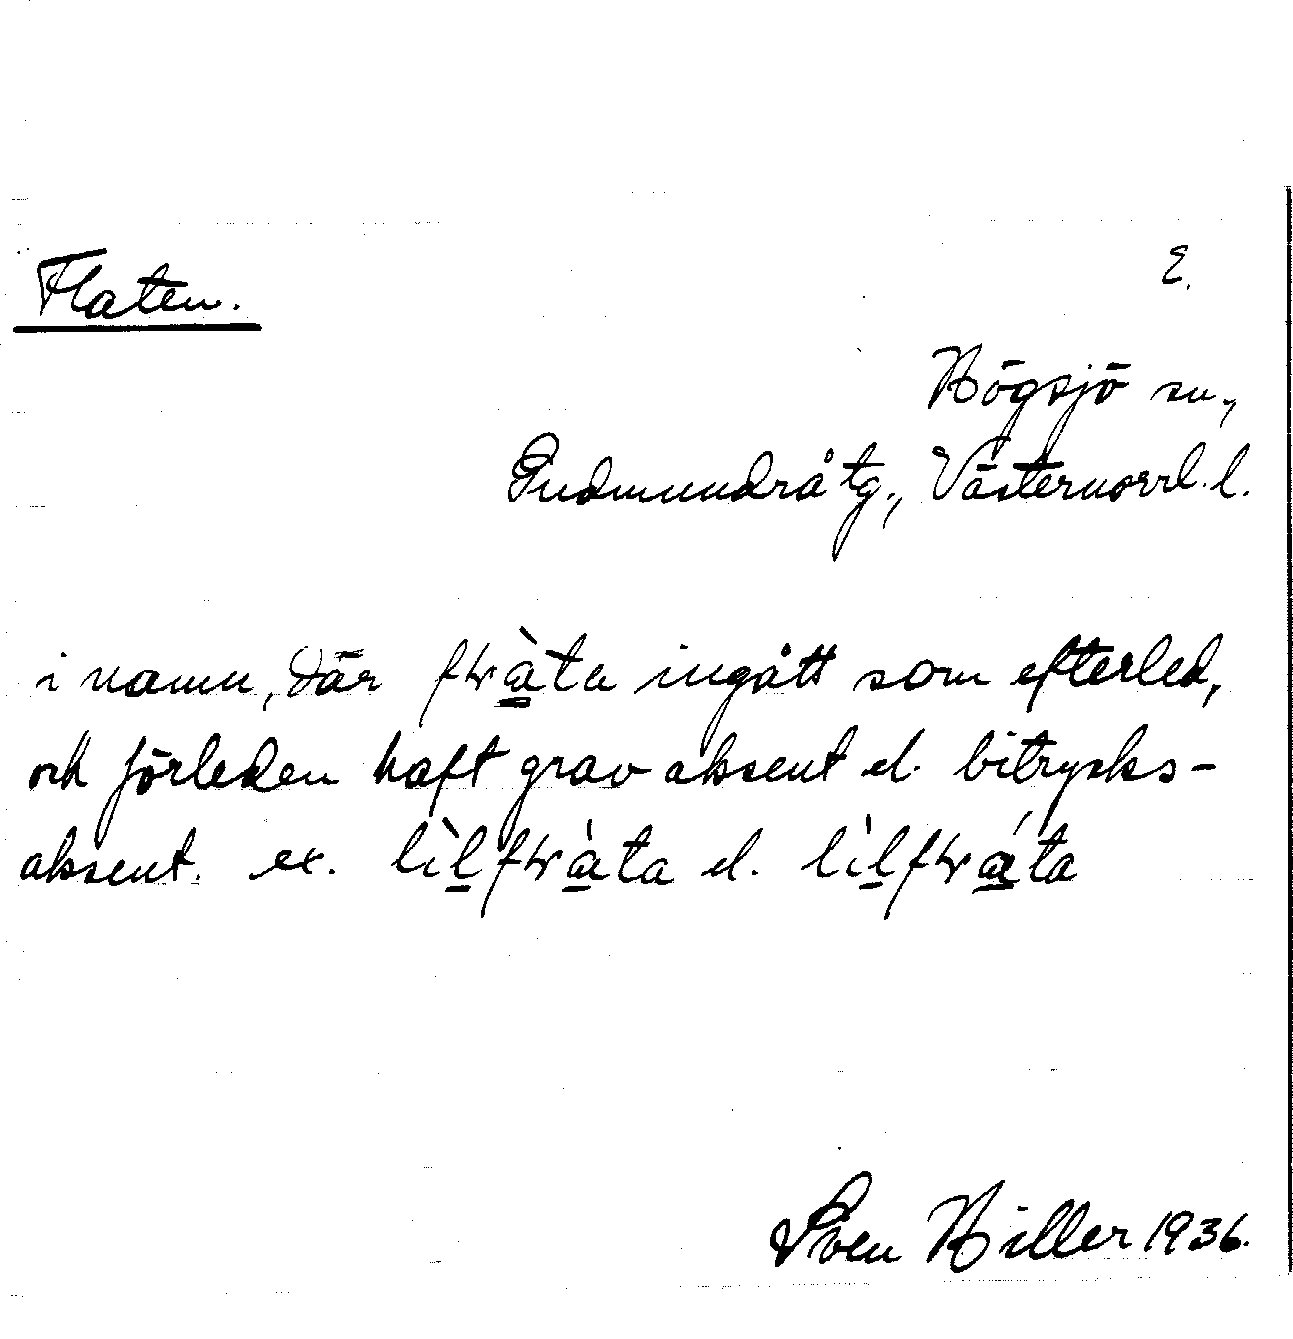 Flaten.
E.
Högsjö sn.,
Gudmundrå tg., Västernorrl. l.
i namn, där fꞭàta ingått som efterled,
och förleden haft grav aksent el. bitrycks-
aksent. ex. lìlfꞭàta el. lìlfꞭáta
Sven Hiller 1936.